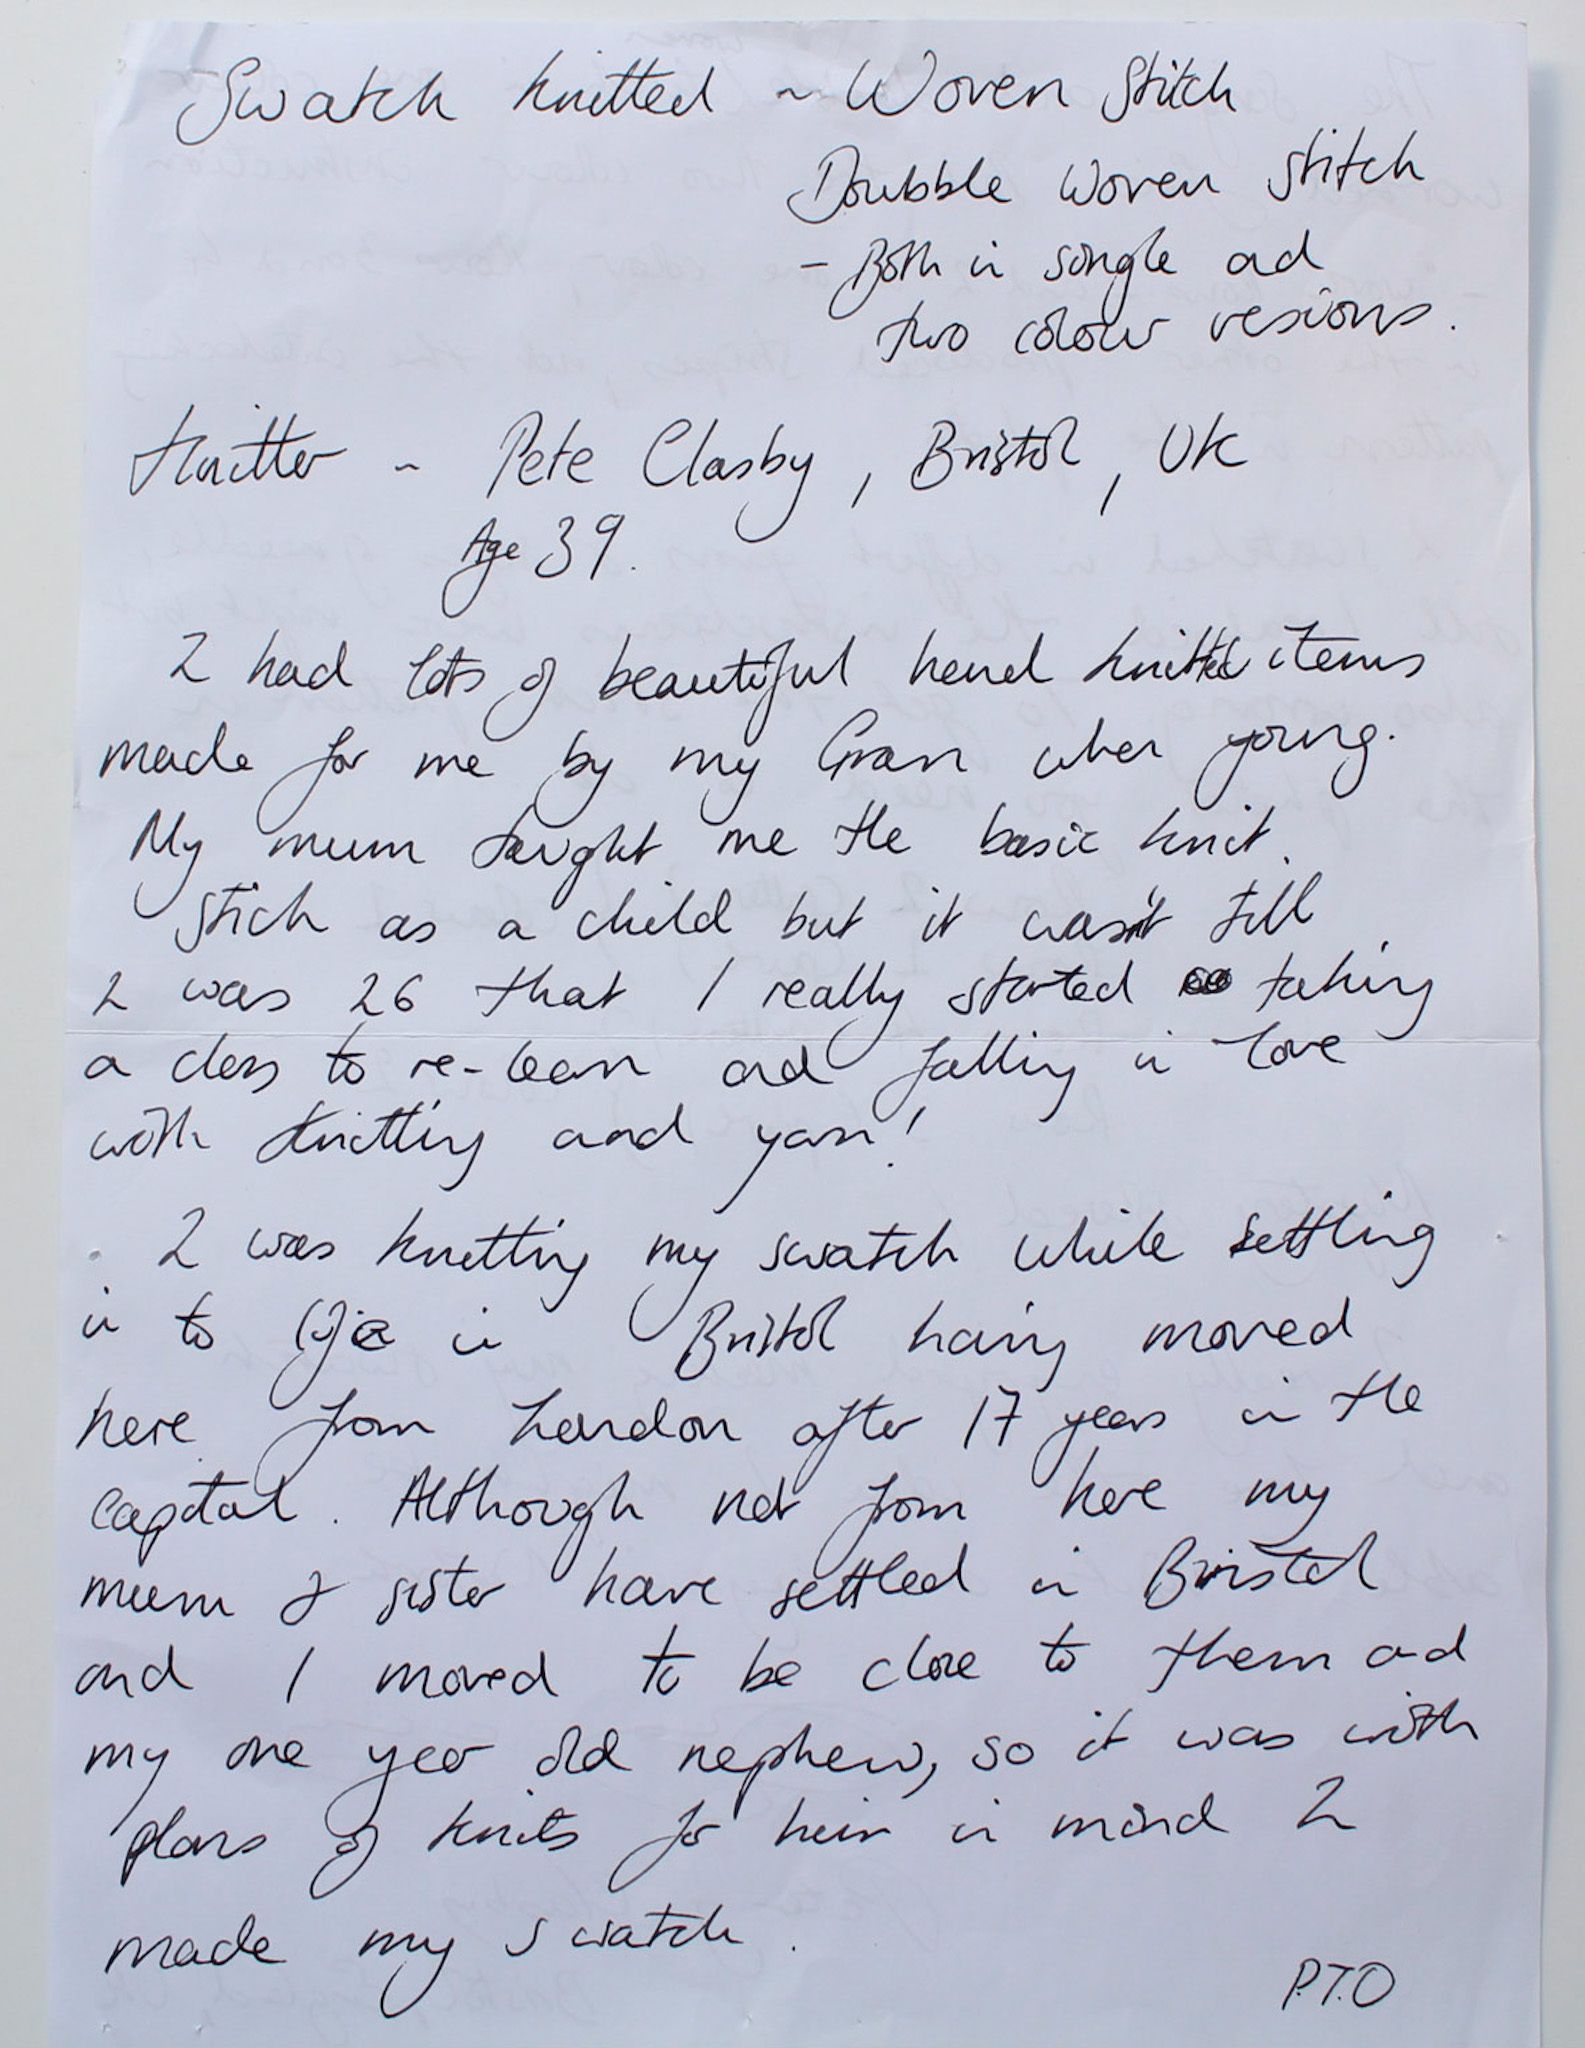 Swatch knitted ~ Woven Stitch
Doubble Woven Stitch
- Both in single ad
two colour vesions.
Knitter ~ Pete Clasby, Bristol, UK
Age 39.
I had lots of beautiful hand knitted items
made for me by my Gran when young.
My mum taught me the basic knit
stich as a child but it wasn't till
I was 26 that I really started taking
a class to re-learn and falling in love
with knitting and yarn!
I was knitting my swatch while settling
in to life in Bristol having moved
here from London after 17 years in the
capital. Although not from here my
mum & sister have settled in Bristol
and I moved to be close to them and
my one year old nephew, so it was with
plans of knits for him in mind I
made my swatch.
P.T.O